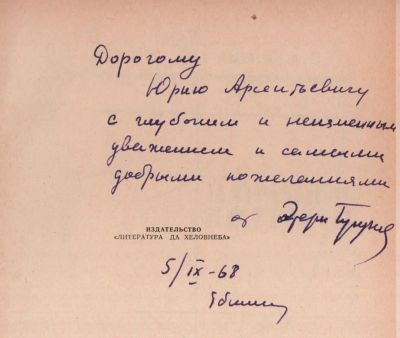 Дорогому
Юрию Арсентьевичу
с глубоким и неизменным
уважением и самыми
добрыми пожеланиями
от
ИЗДАТЕЛЬСТВО
«ЛИТЕРАТУРА ДА ХЕЛОВНЕБА»
5/IX-68